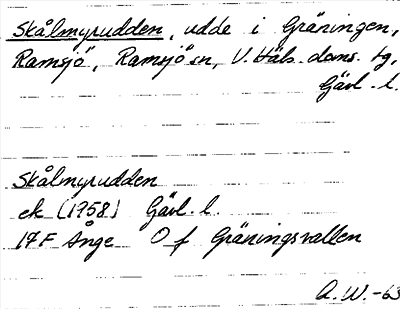 Skålmyrudden, udde i Gräningen,
Ramsjö, Ramsjö sn, V. Häls. doms. tg,
Gävl. l.
Skålmyrudden
ek (1958) Gävl. l.
17F Ånge O f Gräningsvallen
A.W. -63